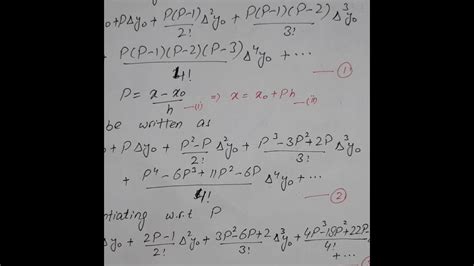 0+PΔy₀ + P(P-1)/2! Δ²y₀ + P(P-1)(P-2)/3! Δ³y₀
+ P(P-1)(P-2)(P-3)/4! Δ⁴y₀ + ⋯ —①
P = x-x₀/h —(i) ⇒ x = x₀+Ph —(ii)
be written as
0+PΔy₀ + P²-P/2! Δ²y₀ + P³-3P²+2P/3! Δ³y₀
+ P⁴-6P³+11P²-6P/4! Δ⁴y₀ + ⋯ —②
tiating w.r.t P
Δy₀ + 2P-1/2! Δ²y₀ + 3P²-6P+2/3! Δ³y₀ + 4P³-18P²+22P-/4!